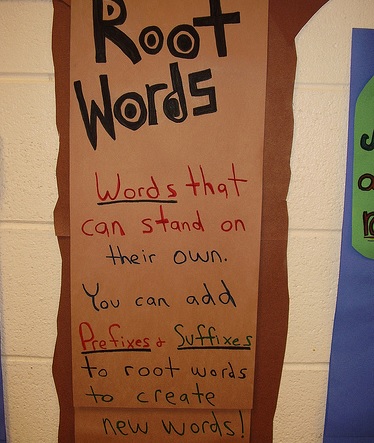 Root
Words
Words that
can stand on
their own.
You can add
Prefixes & Suffixes
to root words
to create
new words!